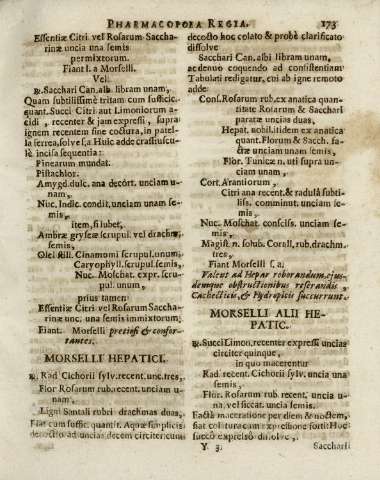 PHARMACOPOEA REGIA. 173
Essentiæ Citri vel Rosarum Saccha-
rinæ uncia una semis
permixtorum.
Fiant l. a Morselli.
Vel.
℞. Sacchari Can. alb. libram unam,
Quam subtilissimè tritam cum sufficic.
quant. Succi Citri aut Limoniorum a-
cidi, recenter & jam expressi, supra
ignem recentem sine coctura, in patel-
la serrea, solve, s.a Huic adde crastiuscu-
lè incisa sequentia:
Pinearum mundat.
Pistachior.
Amygd. dulc. ana decort. unciam u-
nam,
Nuc. Indic. condit. unciam unam se-
mis,
item, si lubet,
Ambræ gryseæ scrupul. vel drachm.
semis,
Olei still. Cinamomi scrupul. unum,
Caryophyll. scrupul. semis,
Nuc. Moschat. expr. scru-
pul. unum,
prius tamen
Essentiæ Citri vel Rosarum Saccha-
rinæ unc. una semis immixtorum,
Fiant. Morselli pretiosi & confor-
tantes.
MORSELLI HEPATICI.
℞. Rad. Cichorii sylv. recent. unc. tres,
Flor Rosarum rub. recent. unciam u-
nam,
Ligni Santali rubri drachmas duas,
Fiat cum suffic. quantit. Aquæ simplicis
decoctio ad uncias decem circiter, cum
decocto hoc colato & probè clarificato
dissolve
Sacchari Can. albi libram unam,
ac denuo coquendo ad consistentiam
Tabulati redigatur, cui ab igne remoto
adde:
Cons. Rosarum rub. ex anatica quan-
titate Rosarum & Sacchari
paratæ uncias duas,
Hepat. nobil. itidem ex anatica
quant. Florum & Sacch. fa-
ctæ unciam unam semis,
Flor. Tunicæ n. uti supra un-
ciam unam,
Cort. Arantiorum,
Citri ana recent. & radulâ subti-
liss. comminut. unciam se-
mis,
Nuc. Moschat. consciss. unciam se-
mis,
Magist. n. solub. Corall. rub. drachm.
tres,
Fiant Morselli s. a.
Valent ad Hepar roborandum, ejus-
demque obstructionibus reserandis,
Cachecticis, & Hydropicis succurrunt.
MORSELLI ALII HE-
PATIC.
℞. Succi Limon. recenter expressi uncias
circiter quinque,
in quo macerentur
Rad. recent. Cichorii sylv. uncia una
semis,
Flor. Rosarum rub recent. uncia u-
na, vel siccat. uncia semis.
Factâ maceratione per diem & noctem,
fiat colatura cum expressione forti: Hoc
succo expresso dissolve,
Y 3. Sacchari